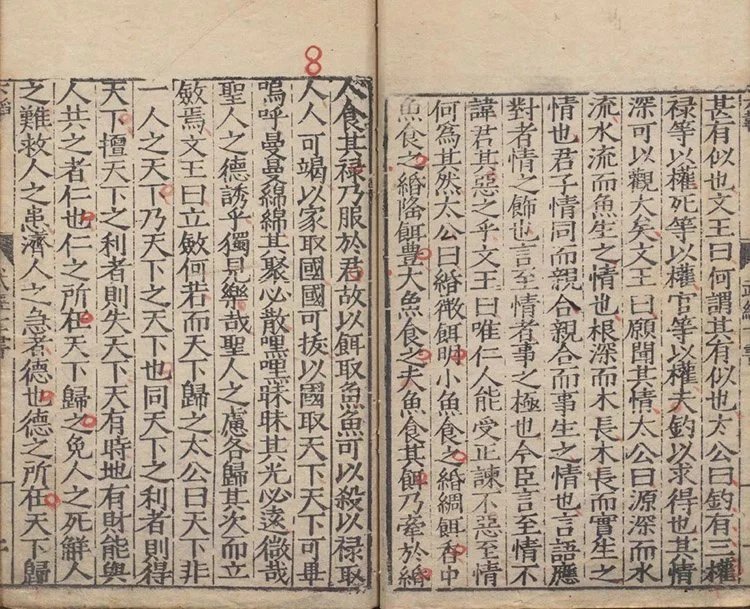 甚有似也文王曰何謂其有似也太公曰釣有三權
禄等以權死等以權官等以權夫釣以求得也其情
深可以觀大矣文王曰願聞其情太公曰源深而水
流水流而魚生之情也根深而木長木長而實生之
情也君子情同而親合親合而事生之情也言語應
對者情之飾也言至情者事之極也今臣言至情不
諱君其惡之乎文王曰唯仁人能受正諫不惡至情
何為其然太公曰緡微餌明小魚食之緡綢餌香中
魚食之緡隆餌豊大魚食之夫魚食其餌乃牽於緡
8
人食其禄乃服於君故以餌取魚魚可以殺以禄取
人人可竭以家取國國可拔以國取天下天下可畢
嗚呼曼曼綿綿其聚必散嘿嘿昧昧其光必遠微哉
聖人之德誘乎獨見樂哉聖人之慮各歸其次而立
斂焉文王曰立斂何若而天下歸之太公曰天下非
一人之天下乃天下之天下也同天下之利者則得
天下擅天下之利者則失天下天有時地有財能與
人共之者仁也仁之所在天下歸之免人之死解人
之難救人之患濟人之急者德也德之所在天下歸